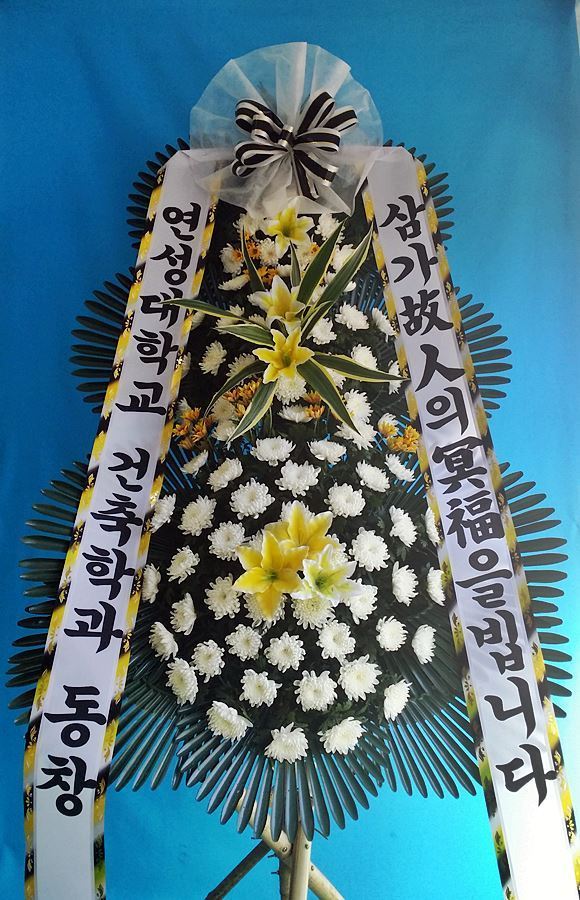 연성대학교 건축학과 동창
삼가故人의冥福을빕니다